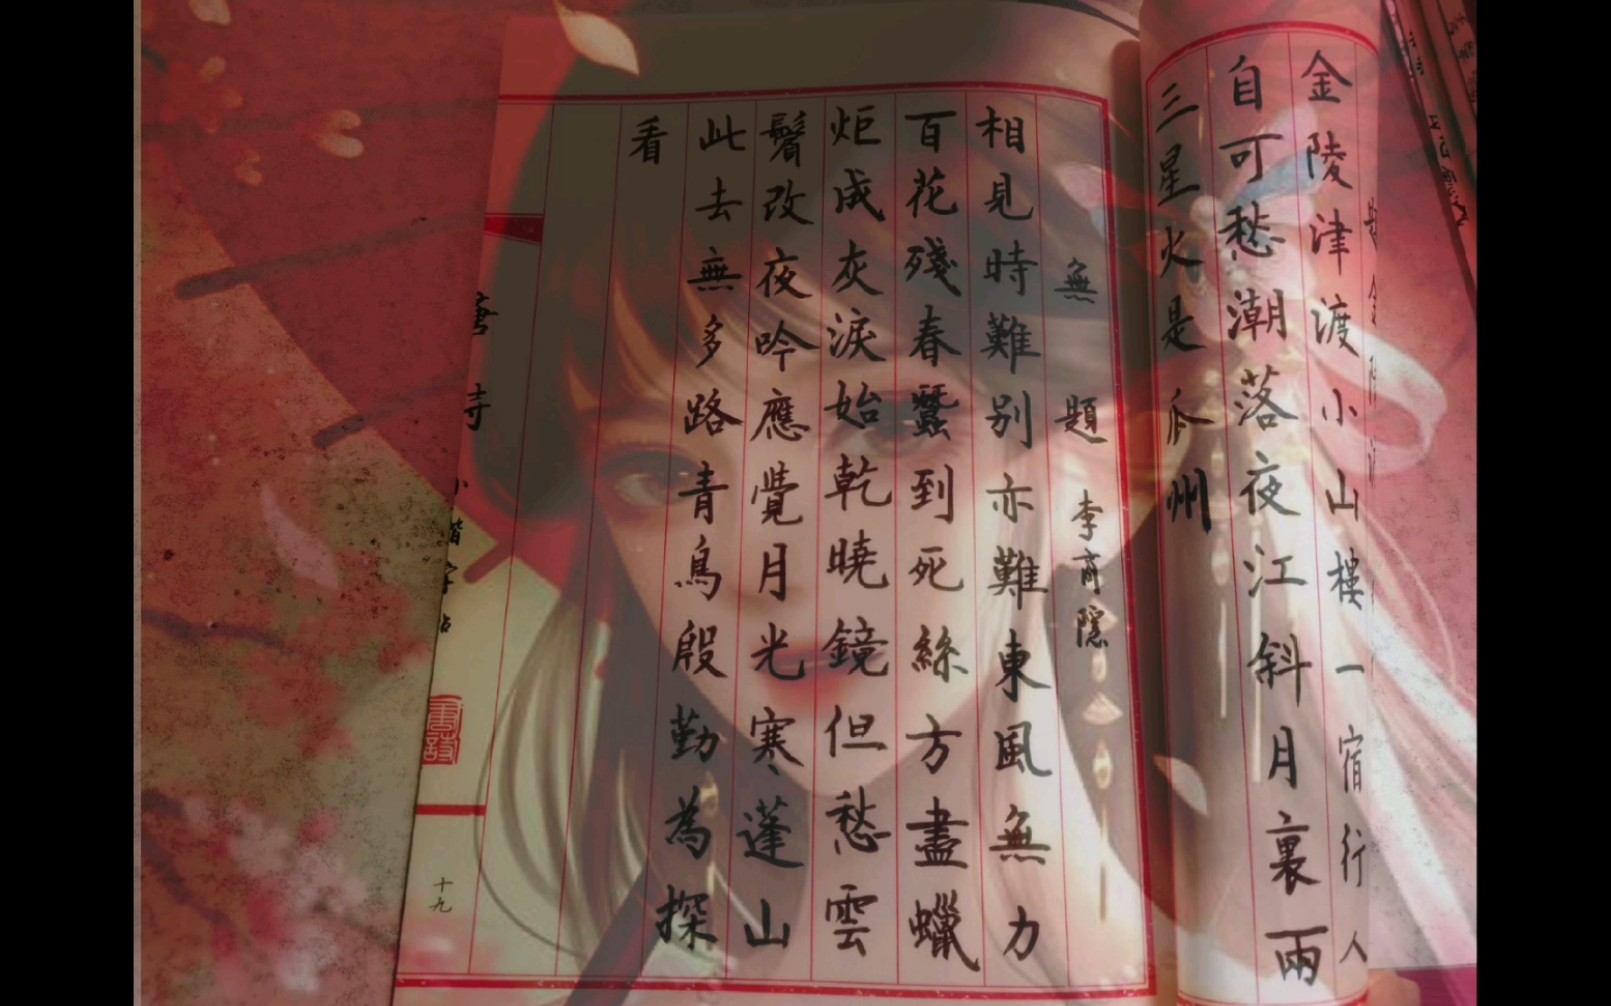 金陵津渡小山樓一宿行人
自可愁潮落夜江斜月裏兩
三星火是瓜州
無題 李商隱
相見時難別亦難東風無力
百花殘春蠶到死絲方盡蠟
炬成灰淚始乾曉鏡但愁雲
鬢改夜吟應覺月光寒蓬山
此去無多路青鳥殷勤為探
看
十九